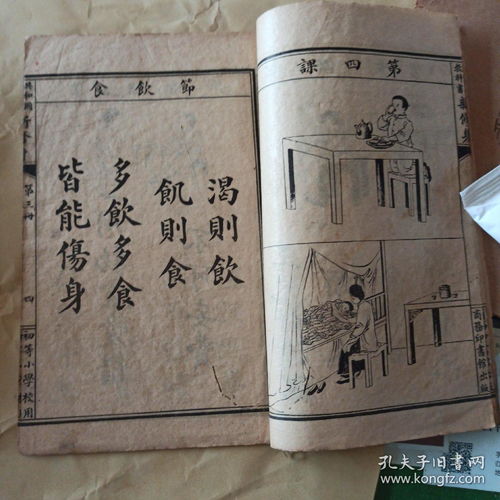 第四課
節飲食
渴則飲
飢則食
多飲多食
皆能傷身
第三冊
四
初等小學校用
商務印書館出版
孔夫子旧书网
www.kongfz.com